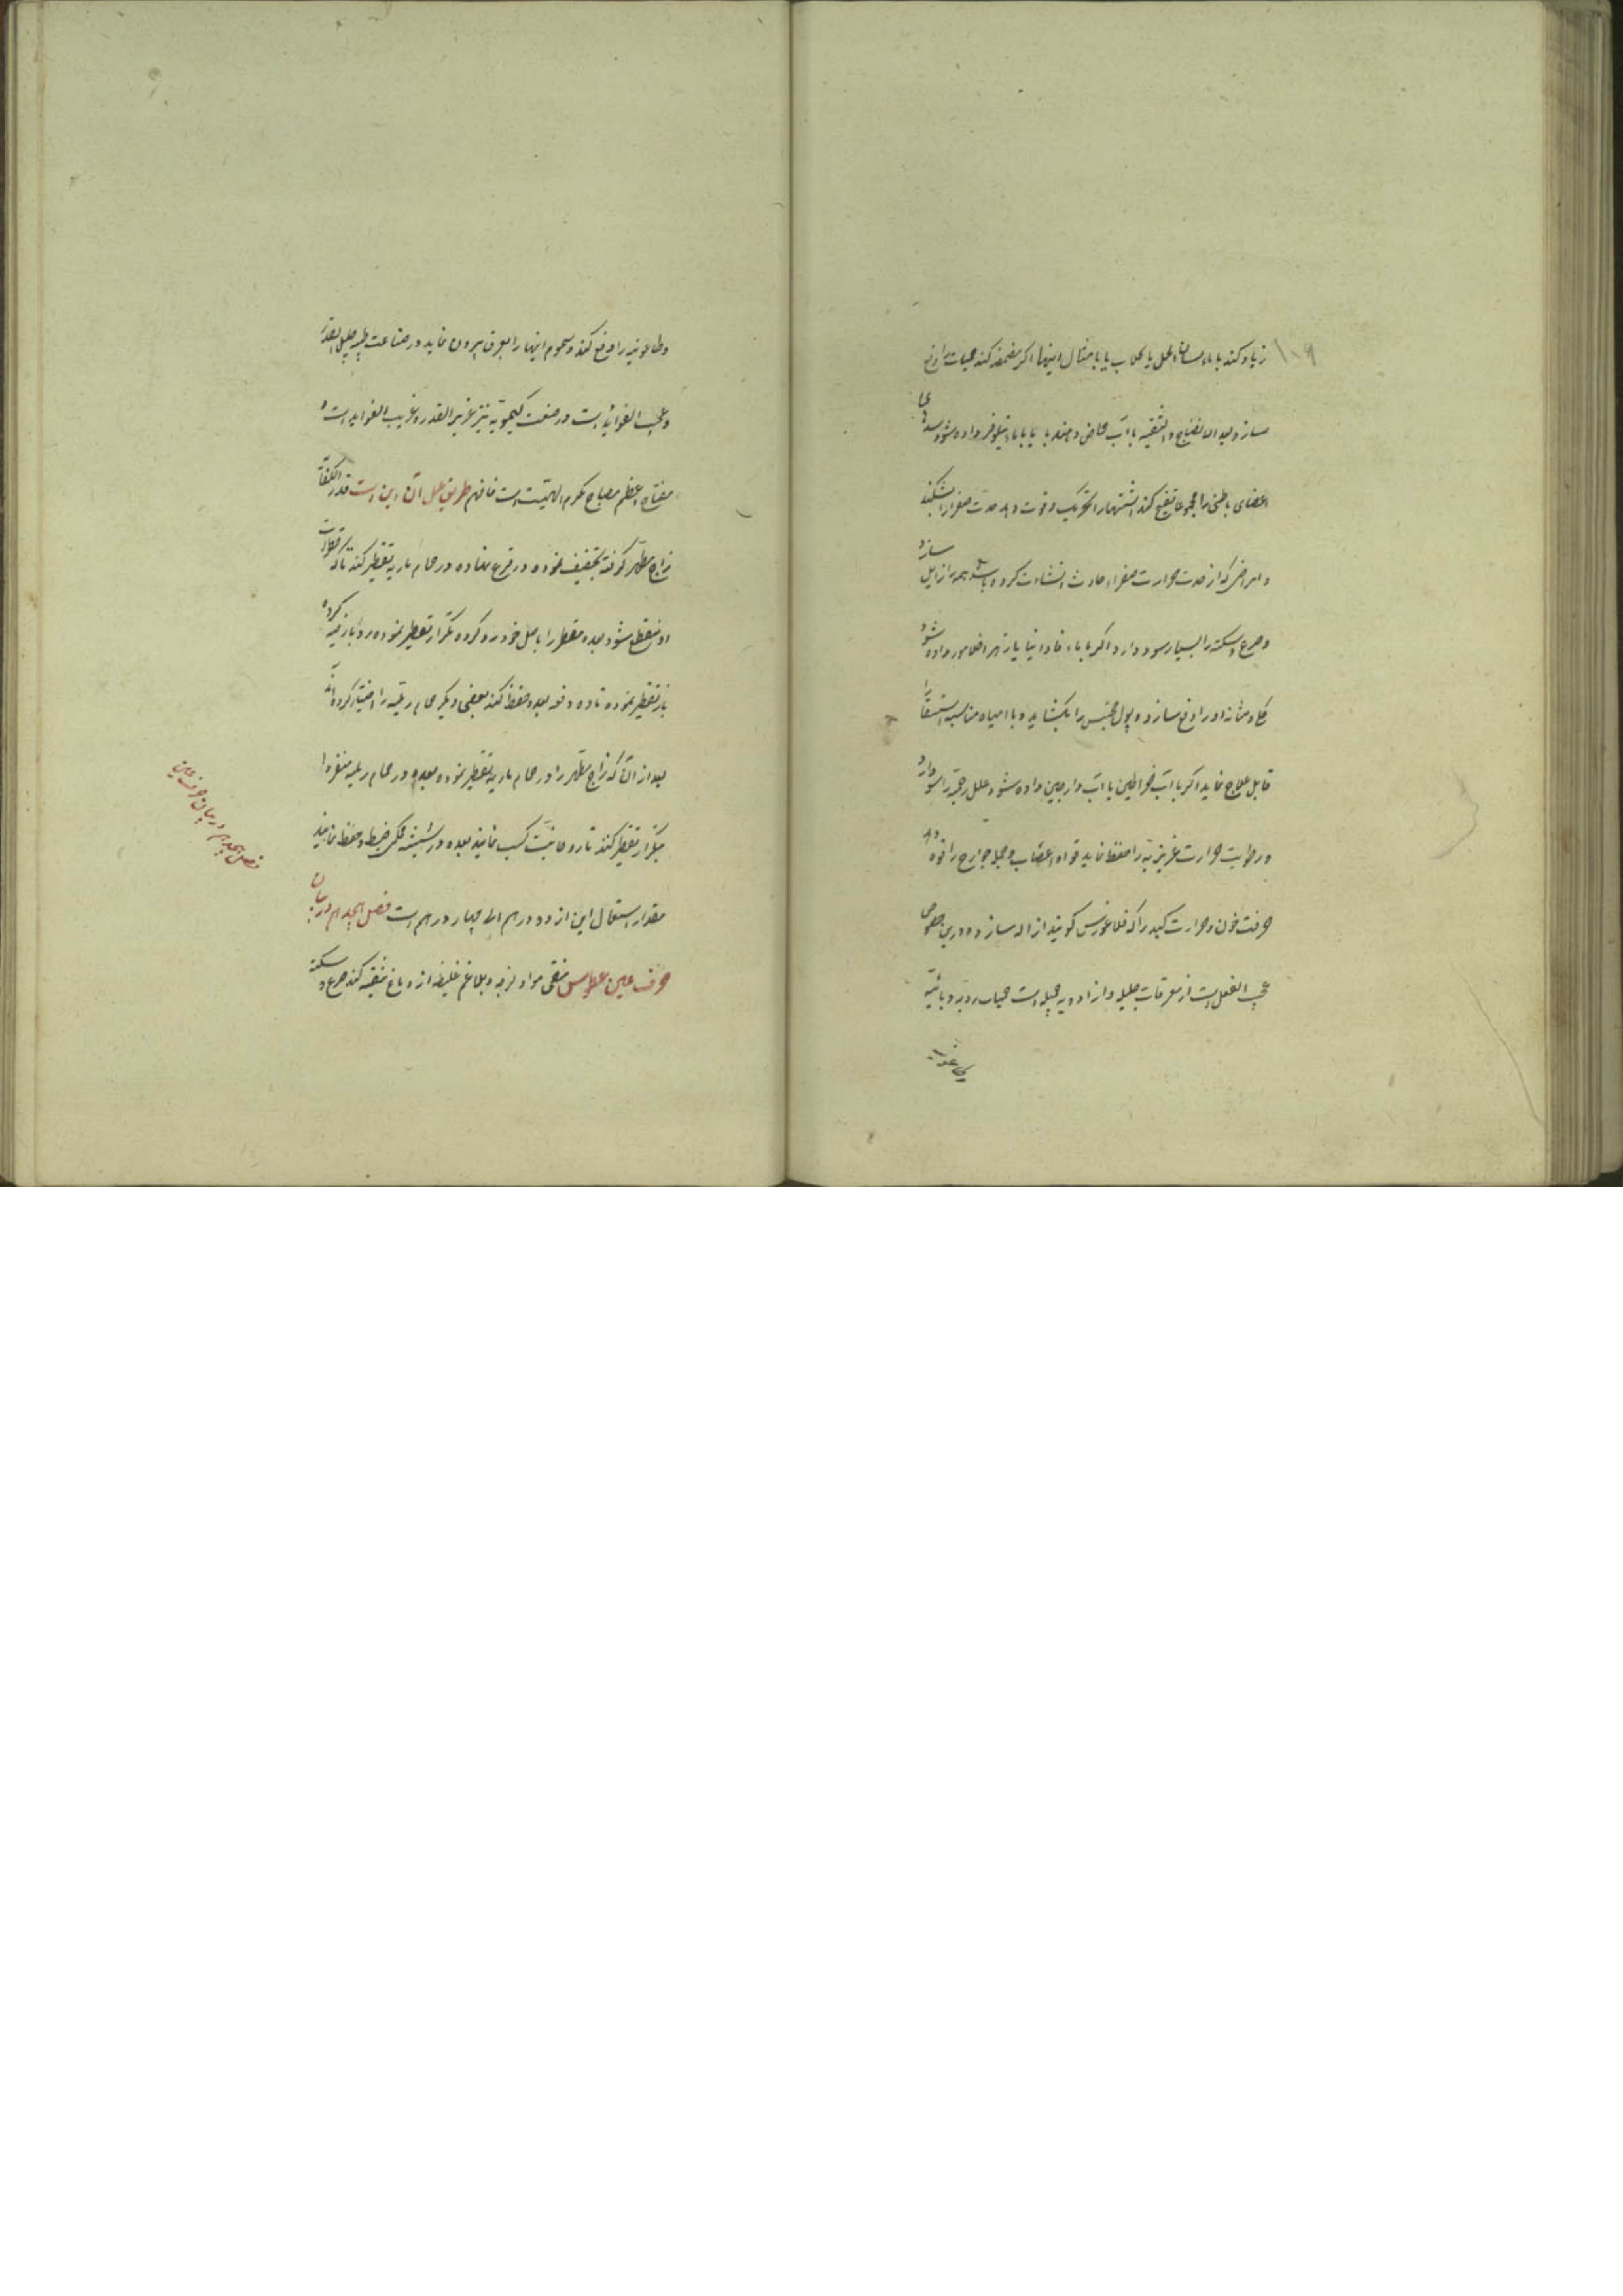 ۱۰۹
زیاد کند باماء لسان الحمل یا بکلاب یا بامثال اینها اکر مضمضه کند حمیات را دفع
سازد بعد الانضاج والتنقیه با آب حماض و هندبا یا باماء نیلوفر داده شود سدهای
اعضای باطنی را مجموعا تفتیح کند اشتهار اتحریک و قوت دهد حدت صفرا را بشکند
و امراضی که از حدت حرارت صفراء حادث و نشات کرده باشد همه را زایل سازد
و صرع و سکته را بسیار سود دارد اکر باماء فاوانیا یا زهر اخلامور داده شود
کلا و مثانه او را دفع سازد و بول محتبس را بکشاید و با امیاه مناسبه استسقا را
قابل علاج نماید اکر با آب خراطین یا آب دارچین داده شود علل رحمیه را سود دارد
و رطوبت حرارت غریزیه را حفظ نماید قواه اعصاب و جمیل جوارح را قوه دهد
حرقت خون و حرارت کبد را که فلاغورس کویند ازاله سازد و درین خصوص
عجیب الفعل است از معرقات جلیله و از ادویه جمیله است حمیات ردیه وبائیه
وطاعونیه را دفع کند و سموم اینها را بعرق بیرون نماید در صناعت طبیه جلیل القدر
و عجیب الفوائد است در صنعت کیمیویه نیز عزیز القدر و غریب الفواید است و
مفتاح اعظم مصباح مکرم الهیت است فافهم طریق عمل آن این است قدر الکفآ
زاج مطهر کرفته تجفیف نموده در قرع نهاده در حمام ماریه تقطیر کند تا که قطرات
او منقطع شود بعده مقطر را باصل خود رد کرده تکرار تقطیر نموده رد باز فیه کرده
باز تقطیر نموده تا ده دفعه بعده حفظ کند بعضی دیکر حمام رملیه را اختیار کرده اند
بعد از آن که زاج مطهر را در حمام ماریه تقطیر نموده بعده در حمام رملیه منفردا
بتکرار تقطیر کند تا روحانیت کسب نماید بعده در شیشه محکم ضبط و حفظ نمایند
مقدار استعمال این از دو درهم الی چهار درهم است فصل هجدهم در بیان
حرف عین عطوس منقی مواد لزجه و بلاغم غلیظه از دماغ تنقیه کند صرع و سکته
فصل هجدهم در بیان حرف عین